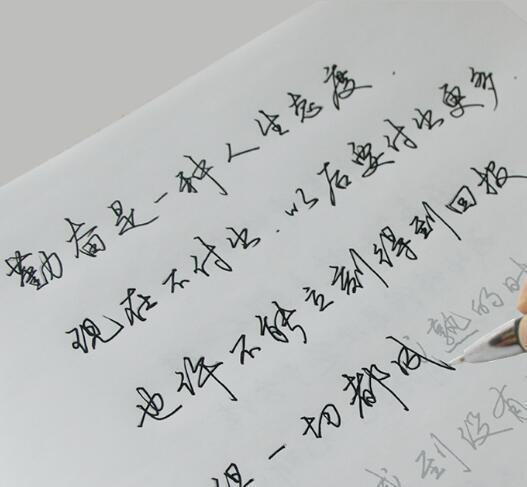 勤奋是一种人生态度.
现在不付出.以后要付出更多
也许不能立刻得到回报
一切都成熟的时
到没有